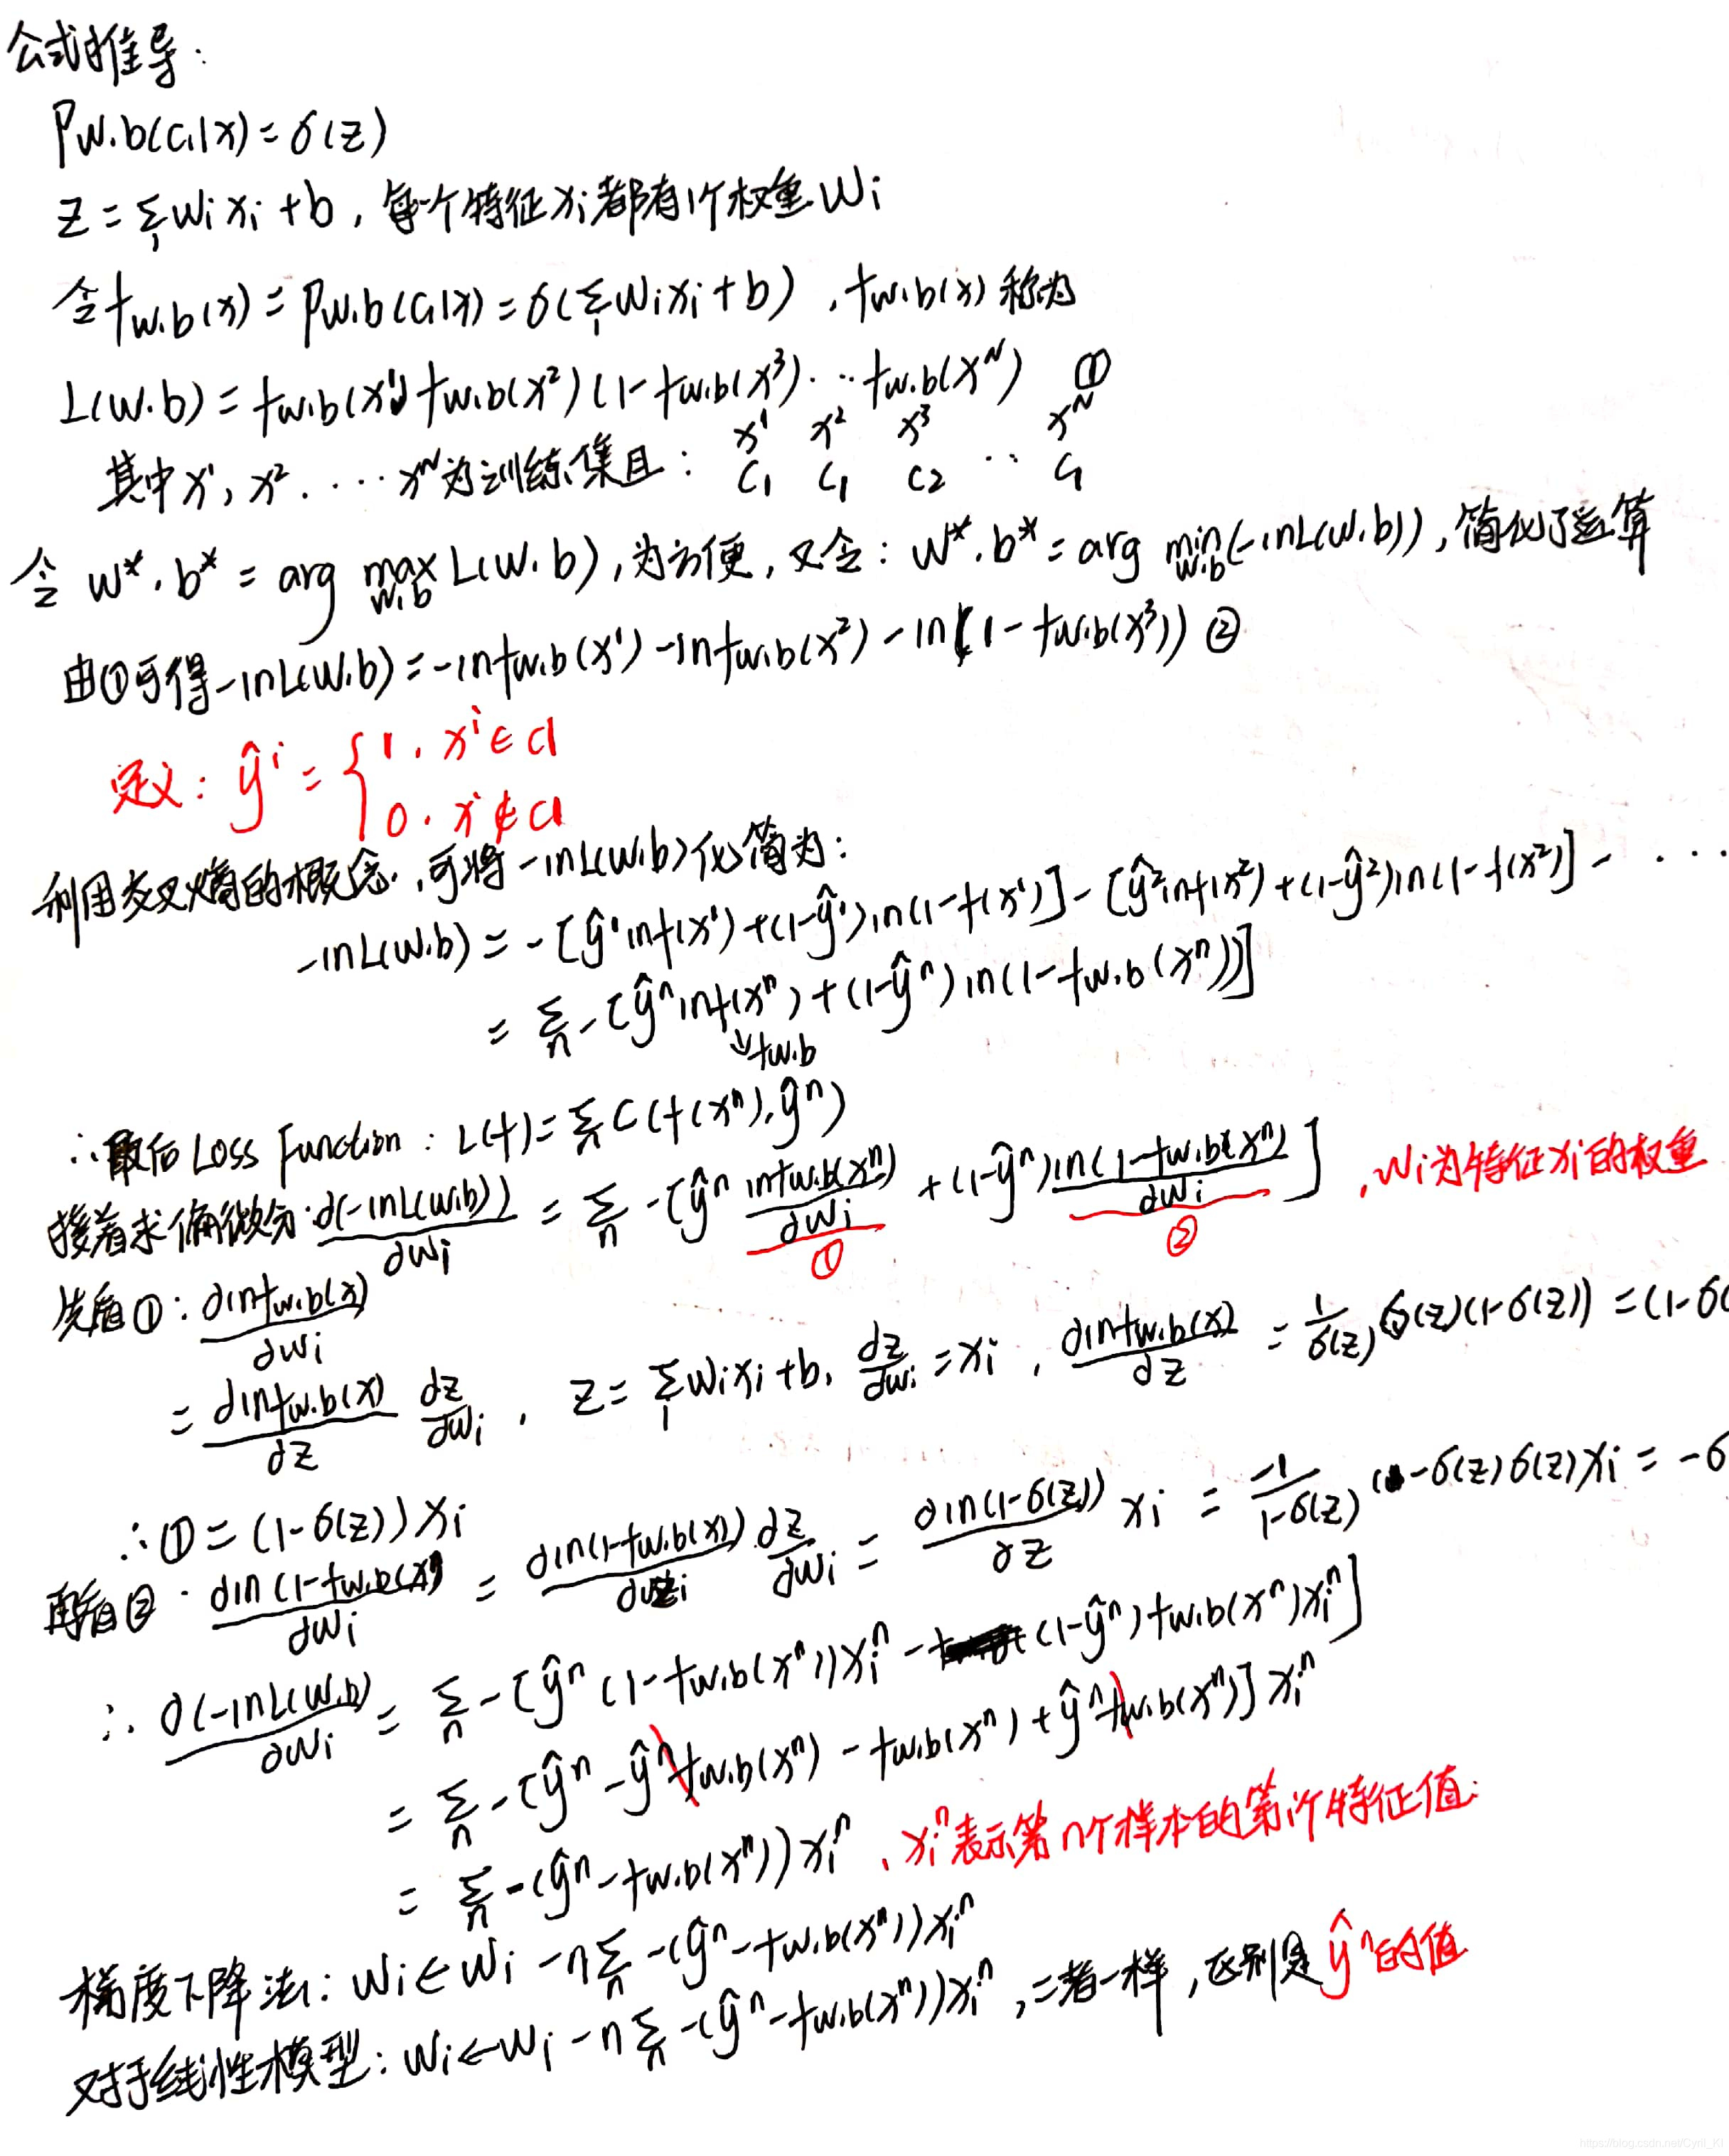 公式推导：
P_{w.b}(C_1|x) = σ(z)
z = Σ_i w_i x_i + b，每一个特征 x_i 都有1个权重 w_i
令 f_{w.b}(x) = P_{w.b}(C_1|x) = σ(Σ_i w_i x_i + b)，f_{w.b}(x) 称为
L(w.b) = f_{w.b}(x^1) f_{w.b}(x^2) (1 - f_{w.b}(x^3)) ⋯ f_{w.b}(x^N) ①
x^1 x^2 x^3 x^N
其中 x^1, x^2. ⋯ x^N 为训练集且： C_1 C_1 C_2 ⋯ C_1
令 w*. b* = arg max_{w.b} L(w.b)，为方便，又令：w*. b* = arg min_{w.b} (-lnL(w.b))，简化了运算
由①可得 -lnL(w.b) = -lnf_{w.b}(x^1) - lnf_{w.b}(x^2) - ln(1 - f_{w.b}(x^3)) ②
定义：ŷ^i = { 1. x^i ∈ C1
0. x^i ∉ C1
利用交叉熵的概念，可将 -lnL(w.b) 化简为：
-lnL(w.b) = -[ŷ^1 lnf(x^1) + (1-ŷ^1)ln(1-f(x^1)] - [ŷ^2 lnf(x^2) + (1-ŷ^2)ln(1-f(x^2)] - ⋯
= Σ_n -[ŷ^n lnf(x^n) + (1-ŷ^n)ln(1-f_{w.b}(x^n))]
↓f_{w.b}
∴最后 Loss Function : L(f) = Σ_n C(f(x^n), ŷ^n)
接着求偏微分：∂(-lnL(w.b))/∂w_i = Σ_n -[ŷ^n lnf_{w.b}(x^n)/∂w_i + (1-ŷ^n) ln(1-f_{w.b}(x^n)/∂w_i]，w_i为特征x_i的权重
① ②
先看①：∂lnf_{w.b}(x)/∂w_i
= ∂lnf_{w.b}(x)/∂z ∂z/∂w_i，z = Σ_i w_i x_i + b，∂z/∂w_i = x_i，∂lnf_{w.b}(x)/∂z = 1/σ(z) σ(z)(1-σ(z)) = (1-σ(
∴① = (1-σ(z))x_i
再看②：∂ln(1-f_{w.b}(x)/∂w_i = ∂ln(1-f_{w.b}(x))/∂z ∂z/∂w_i = ∂ln(1-σ(z))/∂z x_i = -1/(1-σ(z)) (1-σ(z)σ(z)x_i = -σ
∴ ∂(-lnL(w.b)/∂w_i = Σ_n -[ŷ^n(1-f_{w.b}(x^n))x_i^n - (1-ŷ^n)f_{w.b}(x^n)x_i^n]
= Σ_n -[ŷ^n - ŷ^n f_{w.b}(x^n) - f_{w.b}(x^n) + ŷ^n f_{w.b}(x^n)]x_i^n
= Σ_n -(ŷ^n - f_{w.b}(x^n))x_i^n，x_i^n表示第n个样本的第i个特征值.
梯度下降法：w_i ← w_i - η Σ_n -(ŷ^n - f_{w.b}(x^n))x_i^n
对于线性模型：w_i ← w_i - η Σ_n -(ŷ^n - f_{w.b}(x^n))x_i^n，二者一样，区别是 ŷ^n 的值